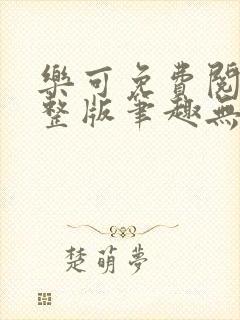 樂可免費閱
整版筆趣無
楚萌夢